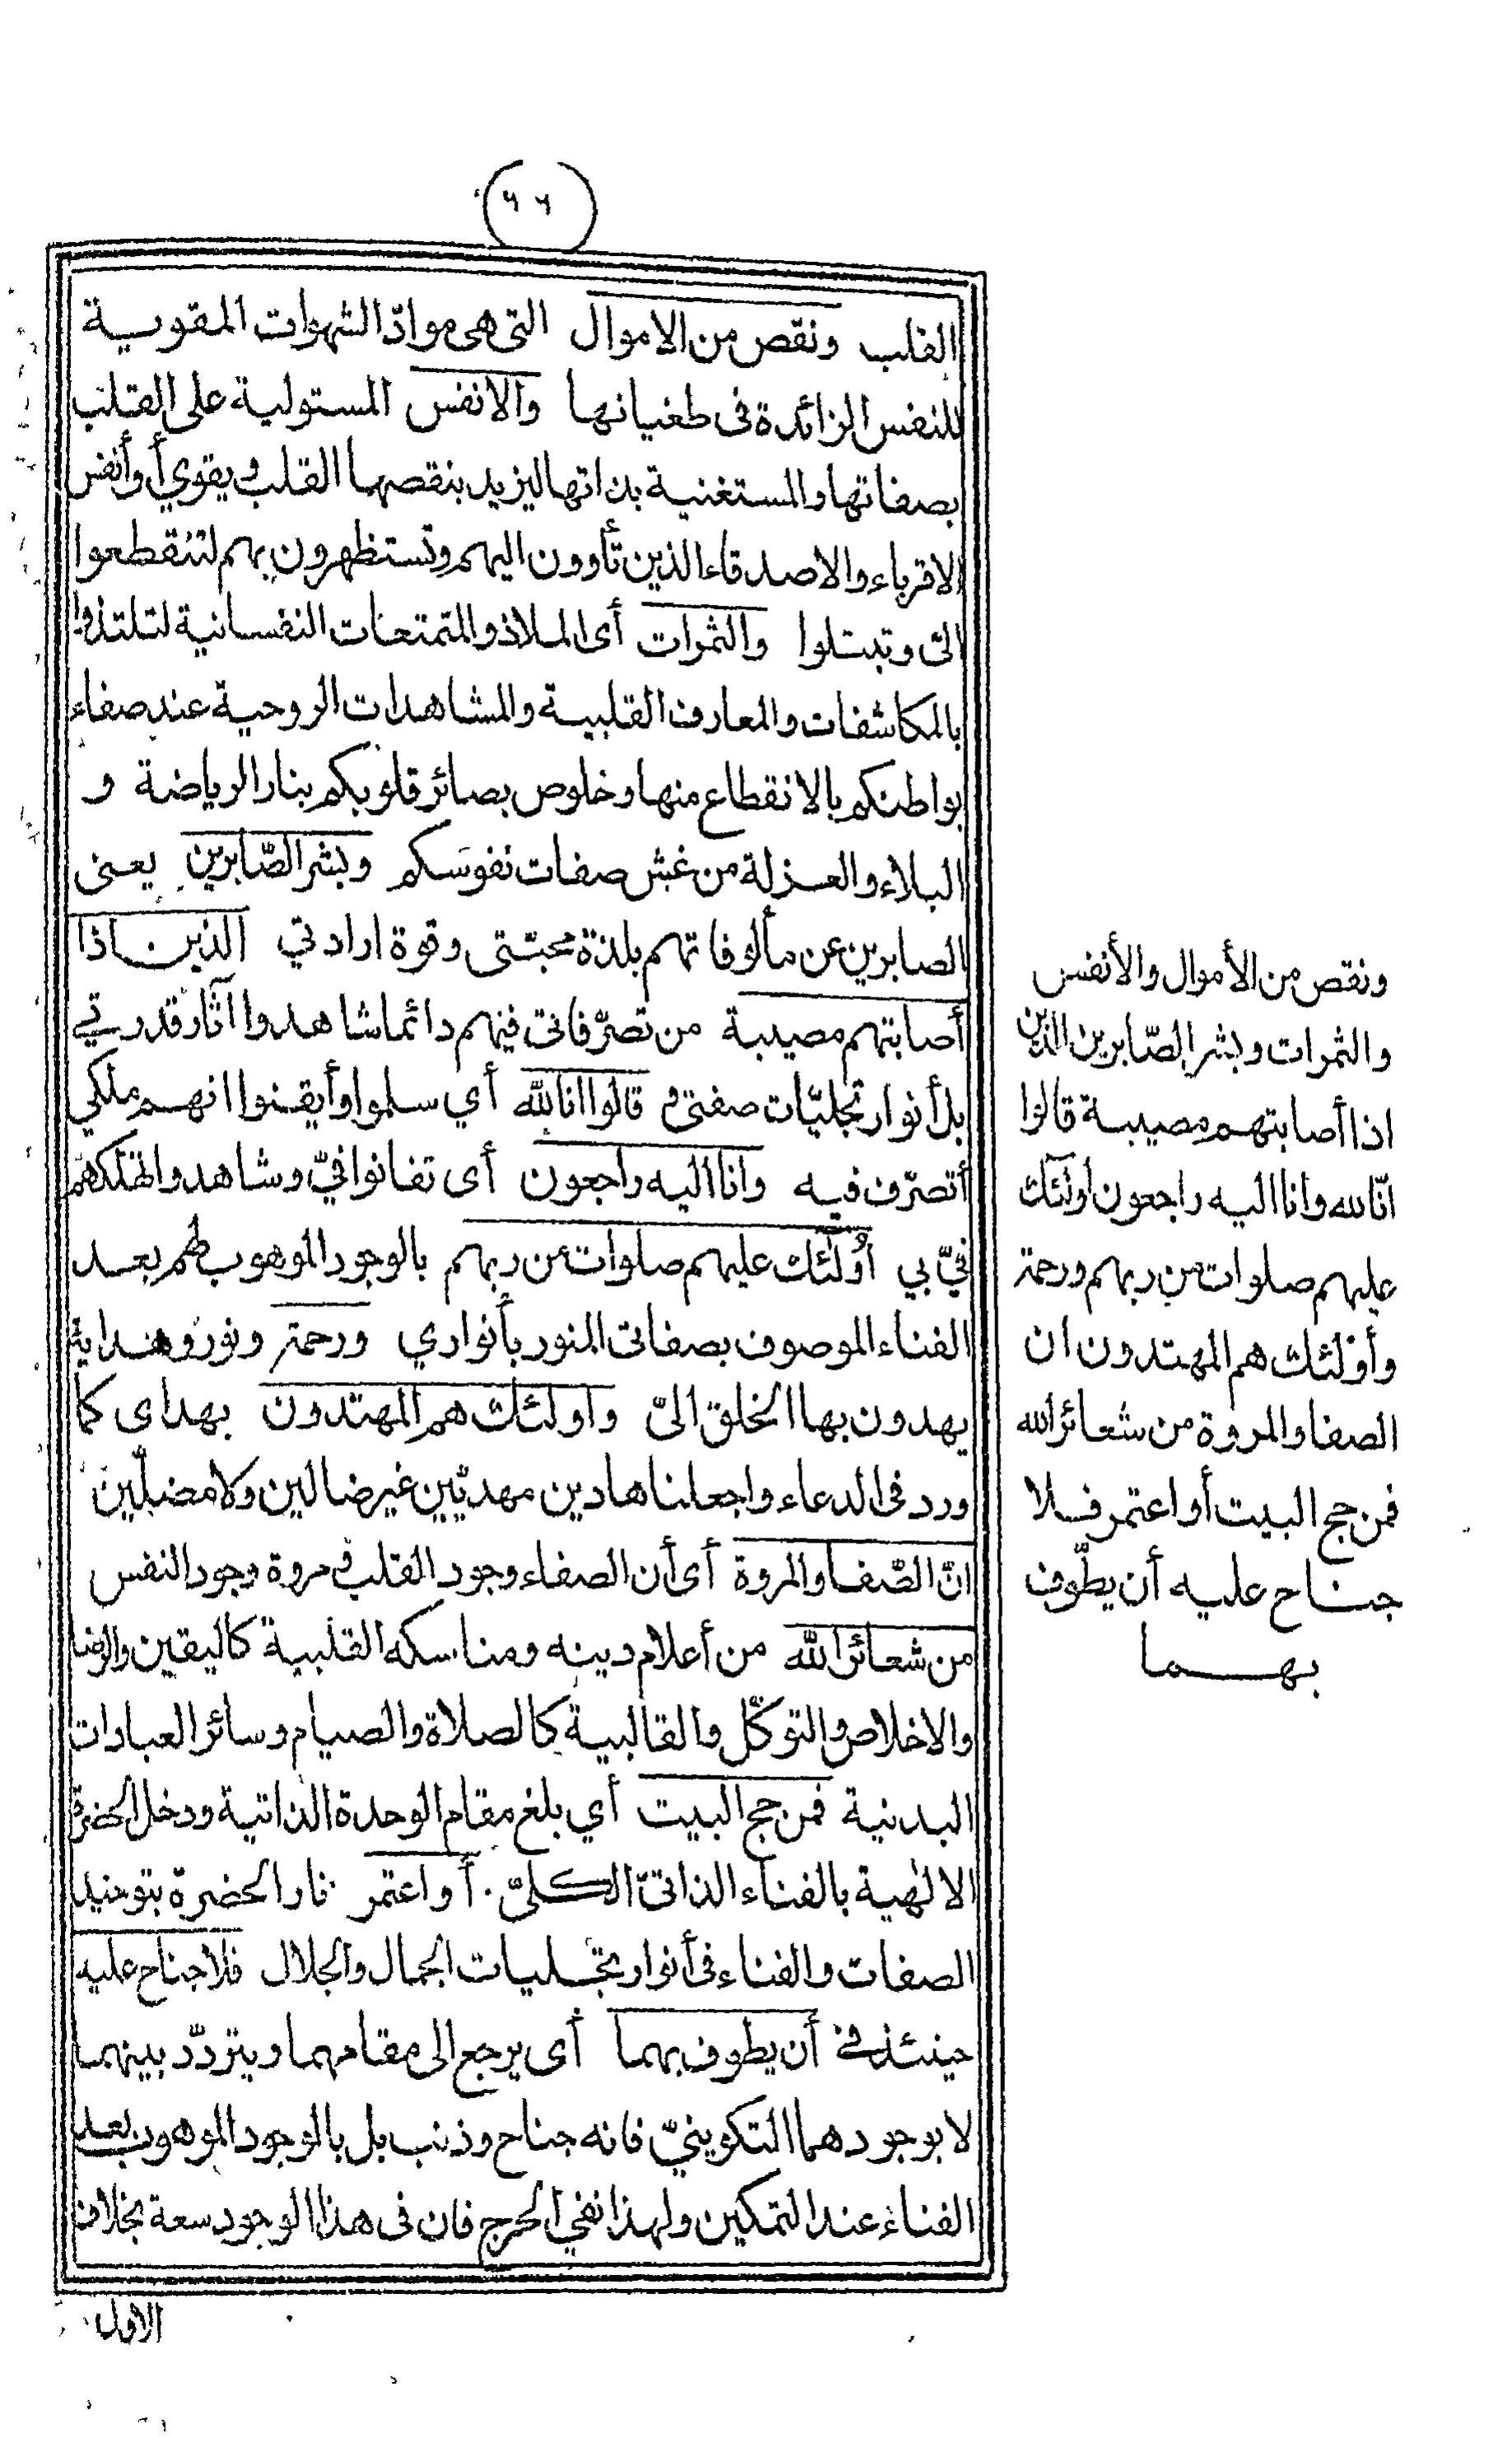 (٦٦)
القلب ونقص من الاموال التى هى موادّ الشهوات المقوية
للنفس الزائدة فى طغيانها والانفس المستولية على القلب
بصفاتها والمستغنية بذاتها ليزيد بنقصها القلب ويقوي أو أنفس
الاقرباء والاصدقاء الذين تأوون اليهم وتستظهرون بهم لتنقطعوا
الىّ وتبتلوا والثمرات أى الملاذ والمتمتعات النفسانية لتلتذوا
بالمكاشفات والمعارف القلبية والمشاهدات الروحية عند صفاء
بواطنكم بالانقطاع منها وخلوص بصائر قلوبكم بنار الرياضة و
البلاء والعزلة من غش صفات نفوسكم وبشر الصّابرين يعنى
الصابرين عن مألوفاتهم بلذة محبّتى وقوة ارادتي الذين اذا
أصابتهم مصيبة من تصرّفاتى فيهم دائما شاهدوا آثار قدرتي
بل أنوار تجليّات صفتى و قالوا انا لله أي سلموا وأيقنوا انهم ملكي
أتصرّف فيه وانا اليه راجعون أى تفانوا فيّ وشاهدوا هلكهم
فيّ بي أولئك عليهم صلوات من ربهم بالوجود الموهوب لهم بعد
الفناء الموصوف بصفاتى المنور بأنواري ورحمة ونور وهداية
يهدون بها الخلق الىّ واولئك هم المهتدون بهداى كما
ورد فى الدعاء واجعلنا هادين مهديّين غير ضالين ولا مضلّين
انّ الصّفا والمروة أى أن الصفاء وجود القلب ومروة وجود النفس
من شعائر الله من أعلام دينه ومناسكه القلبية كاليقين والرضا
والاخلاص والتوكّل والقالبية كالصلاة والصيام وسائر العبادات
البدنية فمن حج البيت أي بلغ مقام الوحدة الذاتية ودخل الحضرة
الالهية بالفناء الذاتىّ الكلىّ أو اعتمر نار الحضرة بتوحيد
الصفات والفناء فى أنوار تجليات الجمال والجلال فلا جناح عليه
حينئذ فى أن يطوف بهما أى يرجع الى مقامهما ويتردّد بينهما
لا بوجودهما التكوينيّ فانه جناح وذنب بل بالوجود الموهوب بعد
الفناء عند التمكين ولهذا نفي الحرج فان فى هذا الوجود سعة بخلاف
الاول
ونقص من الأموال والأنفس
والثمرات وبشر الصّابرين الذين
اذا أصابتهم مصيبة قالوا
انّا لله وانا اليه راجعون اولئك
عليهم صلوات من ربهم ورحمة
وأولئك هم المهتدون ان
الصفا والمروة من شعائر الله
فمن حج البيت أو اعتمر فلا
جناح عليه أن يطّوف
بهما